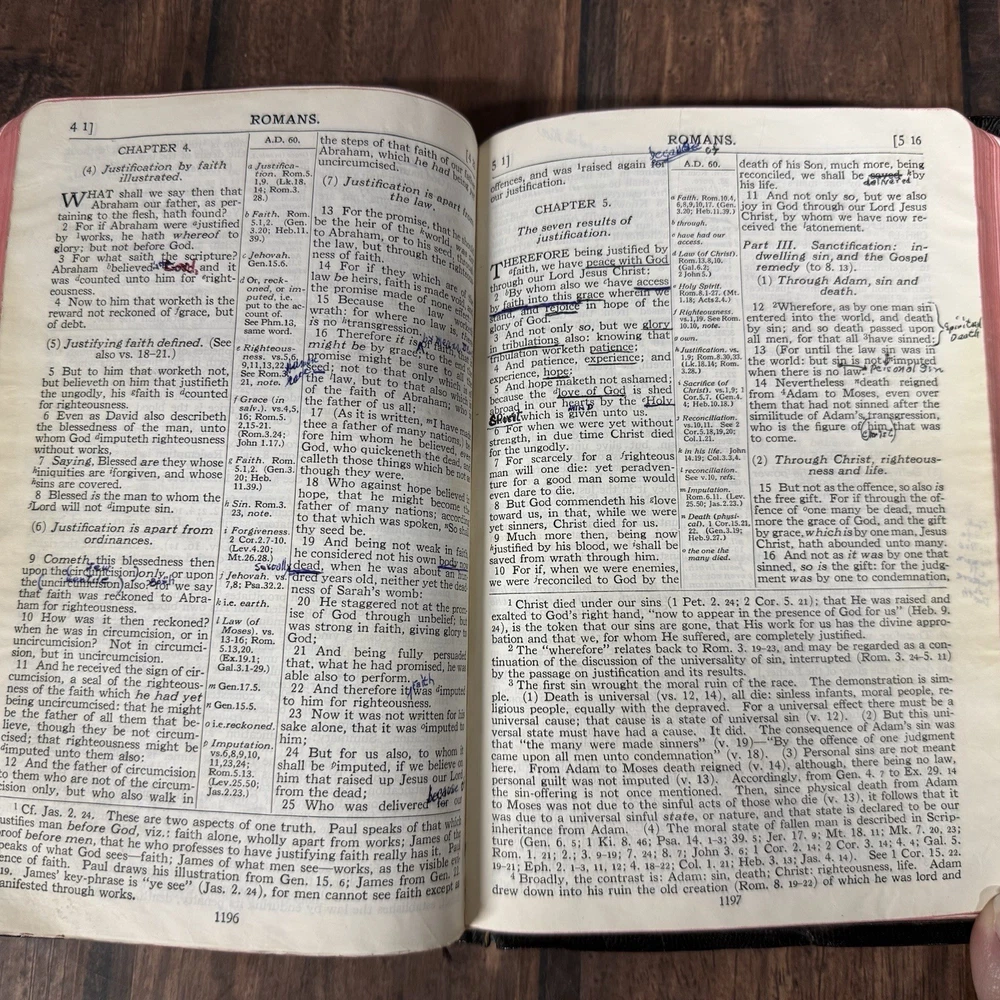 4 1]
ROMANS.
CHAPTER 4.
(4) Justification by faith
illustrated.
WHAT shall we say then that
Abraham our father, as per-
taining to the flesh, hath found?
2 For if Abraham were justified
by works, he hath whereof to
glory; but not before God.
3 For what saith the scripture?
Abraham believed God, and it
was counted unto him for right-
eousness.
4 Now to him that worketh is the
reward not reckoned of grace, but
of debt.
(5) Justifying faith defined. (See
also vs. 18-21.)
5 But to him that worketh not,
but believeth on him that justifieth
the ungodly, his faith is counted
for righteousness.
6 Even as David also describeth
the blessedness of the man, unto
whom God imputeth righteousness
without works,
7 Saying, Blessed are they whose
iniquities are forgiven, and whose
sins are covered.
8 Blessed is the man to whom the
Lord will not impute sin.
(6) Justification is apart from
ordinances.
9 Cometh this blessedness then
upon the circumcision only, or upon
the uncircumcision also? we say
that faith was reckoned to Abra-
ham for righteousness.
10 How was it then reckoned?
when he was in circumcision, or in
uncircumcision? Not in circumci-
sion, but in uncircumcision.
11 And he received the sign of cir-
cumcision, a seal of the righteous-
ness of the faith which he had yet
being uncircumcised: that he might
be the father of all them that be-
lieve, though they be not circum-
cised; that righteousness might be
imputed unto them also:
12 And the father of circumcision
to them who are not of the circum-
cision only, but who also walk in
A.D. 60.
a Justifica-
tion. Rom.5.
1,9. (Lk.18.
14; Rom.3.
28.)
b Faith. Rom.
5.1,2. (Gen.
3.20; Heb.11.
39.)
c Jehovah.
Gen.15.6.
d Or, reck-
oned, or im-
puted, i.e.
put to the
account of.
See Phm.13,
same word.
e Righteous-
ness. vs.5,6,
9,11,13,22
See Rom.3.
21, note.
f Grace (in
salv.). vs.4,5,
16; Rom.5.
2,15-21.
(Rom.3.24;
John 1.17.)
g Faith. Rom.
5.1,2. (Gen.3.
20; Heb.
11.39.)
h Sin. Rom.3.
23, note.
i Forgiveness.
2 Cor.2.7-10.
(Lev.4.20;
Mt.26.28.)
j Jehovah. vs.
7,8; Psa.32.2.
k i.e. earth.
l Law (of
Moses). vs.
13-16; Rom.
5.13,20.
(Ex.19.1;
Gal.3.1-29.)
m Gen.17.5.
n Gen.15.5.
o i.e.reckoned.
p Imputation.
vs.6,8,9,10,
11,23,24;
Rom.5.13.
(Lev.25.50;
Jas.2.23.)
the steps of that faith of our
Abraham, which he had being
uncircumcised.
(7) Justification is apart from
the law.
13 For the promise, that he should
be the heir of the world, was
to Abraham, or to his seed,
the law, but through the righteous-
ness of faith.
14 For if they which are of
law be heirs, faith is made void,
the promise made of none
15 Because the law worketh
wrath: for where no law is,
is no transgression.
16 Therefore it is of faith,
might be by grace; to the end
promise might be sure to all
seed; not to that only which
the law, but to that also
of the faith of Abraham; who
father of us all;
17 (As it is written, I have made
thee a father of many nations,)
fore him whom he believed, even
God, who quickeneth the dead, and
calleth those things which be not
though they were.
18 Who against hope believed
hope, that he might become the
father of many nations; according
to that which was spoken, So
thy seed be.
19 And being not weak in faith,
he considered not his own body now
Sexually dead, when he was about an hun-
dred years old, neither yet the dead-
ness of Sarah's womb:
20 He staggered not at the prom-
ise of God through unbelief; but
was strong in faith, giving glory to
God;
21 And being fully persuaded
that, what he had promised, he was
able also to perform.
faith
22 And therefore it was imputed
to him for righteousness.
23 Now it was not written for his
sake alone, that it was imputed to
him;
24 But for us also, to whom it
shall be imputed, if we believe on
him that raised up Jesus our Lord
from the dead;
because
25 Who was delivered for our
1 Cf. Jas. 2. 24. These are two aspects of one truth. Paul speaks of that which
justifies man before God, viz.: faith alone, wholly apart from works; James of the
proof before men, that he who professes to have justifying faith really has it. Paul
speaks of what God sees—faith; James of what men see—works, as the visible evi-
ence of faith. Paul draws his illustration from Gen. 15. 6; James from Gen.
19. James' key-phrase is "ye see" (Jas. 2. 24), for men cannot see faith except as
manifested through works.
1196
5 1]
ROMANS.
[5 16
because of
offences, and was raised again for
our justification.
CHAPTER 5.
The seven results of
justification.
THEREFORE being justified by
faith, we have peace with God
through our Lord Jesus Christ:
2 By whom also we have access
by faith into this grace wherein we
stand, and rejoice in hope of the
glory of God.
3 And not only so, but we glory
in tribulations also: knowing that
tribulation worketh patience;
4 And patience, experience; and
experience, hope:
5 And hope maketh not ashamed;
because the love of God is shed
abroad in our hearts by the Holy
mind
Ghost which is given unto us.
6 For when we were yet without
strength, in due time Christ died
for the ungodly.
7 For scarcely for a righteous
man will one die: yet peradven-
ture for a good man some would
even dare to die.
8 But God commendeth his love
toward us, in that, while we were
yet sinners, Christ died for us.
9 Much more then, being now
justified by his blood, we shall be
saved from wrath through him.
10 For if, when we were enemies,
we were reconciled to God by the
A.D. 60.
a Faith. Rom.10.4,
6,8,9,10,17. (Gen.
3.20; Heb.11.39.)
b through.
c have had our
access.
d Law (of Christ)
Rom.13.8,10.
(Gal.6.2;
2 John 5.)
e Holy Spirit.
Rom.8.1-27. (Mt.
1.18; Acts 2.4.)
f Righteousness.
Rom.9.1,19. See Rom.
10.10, note.
g own.
h Justification. vs.
1,9; Rom.8.30,33.
(Lk.18.14; Rom.
3.28.)
i Sacrifice (of
Christ). vs.1,9; 1
Cor.5.7. (Gen.4.
4; Heb.10.18.)
j Reconciliation.
vs.10,11. See 2
Cor.5.18,19,20;
Col.1.21.
k in his life. John
14.19; Col.3.3,4.
l reconciliation.
See v.10, refs.
m Imputation.
Rom.6.11. (Lev.
25.50; Jas.2.23.)
n Death (physi-
cal). 1 Cor.15.21,
22. (Gen.3.19;
Heb.9.27.)
o the one the
many died.
death of his Son, much more, being
reconciled, we shall be saved by
delivered
his life.
11 And not only so, but we also
joy in God through our Lord Jesus
Christ, by whom we have now re-
ceived the atonement.
Part III. Sanctification: in-
dwelling sin, and the Gospel
remedy (to 8. 13).
(1) Through Adam, sin and
death.
12 Wherefore, as by one man sin
entered into the world, and death
by sin; and so death passed upon
all men, for that all have sinned:
Spiritual
Death
13 (For until the law sin was in
the world: but sin is not imputed
when there is no law.
Personal sin
14 Nevertheless death reigned
from Adam to Moses, even over
them that had not sinned after the
similitude of Adam's transgression,
who is the figure of him that was
(Christ)
to come.
(2) Through Christ, righteous-
ness and life.
15 But not as the offence, so also is
the free gift. For if through the of-
fence of one many be dead, much
more the grace of God, and the gift
by grace, which is by one man, Jesus
Christ, hath abounded unto many.
16 And not as it was by one that
sinned, so is the gift: for the judg-
ment was by one to condemnation,
1 Christ died under our sins (1 Pet. 2. 24; 2 Cor. 5. 21); that He was raised and
exalted to God's right hand, "now to appear in the presence of God for us" (Heb. 9.
24), is the token that our sins are gone, that His work for us has the divine appro-
bation and that we, for whom He suffered, are completely justified.
2 The "wherefore" relates back to Rom. 3. 19-23, and may be regarded as a con-
tinuation of the discussion of the universality of sin, interrupted (Rom. 3. 24-5. 11)
by the passage on justification and its results.
3 The first sin wrought the moral ruin of the race. The demonstration is sim-
ple. (1) Death is universal (vs. 12, 14), all die: sinless infants, moral people, re-
ligious people, equally with the depraved. For a universal effect there must be a
universal cause; that cause is a state of universal sin (v. 12). (2) But this uni-
versal state must have had a cause. It did. The consequence of Adam's sin was
that "the many were made sinners" (v. 19)—"By the offence of one judgment
came upon all men unto condemnation" (v. 18). (3) Personal sins are not meant
here. From Adam to Moses death reigned (v. 14), although, there being no law,
personal guilt was not imputed (v. 13). Accordingly, from Gen. 4. 7 to Ex. 29. 14
the sin-offering is not once mentioned. Then, since physical death from Adam
to Moses was not due to the sinful acts of those who die (v. 13), it follows that it
was due to a universal sinful state, or nature, and that state is declared to be our
inheritance from Adam. (4) The moral state of fallen man is described in Scrip-
ture (Gen. 6. 5; 1 Ki. 8. 46; Psa. 14. 1-3; 39. 5; Jer. 17. 9; Mt. 18. 11; Mk. 7. 20, 23;
Rom. 1. 21; 2.; 3. 9-19; 7. 24; 8. 7; John 3. 6; 1 Cor. 2. 14; 2 Cor. 3. 14; 4. 4; Gal. 5.
19-21; Eph. 2. 1-3, 11, 12; 4. 18-22; Col. 1. 21; Heb. 3. 13; Jas. 4. 14). See 1 Cor. 15. 22,
4 Broadly, the contrast is: Adam: sin, death; Christ: righteousness, life. Adam
drew down into his ruin the old creation (Rom. 8. 19-22) of which he was lord and
1197